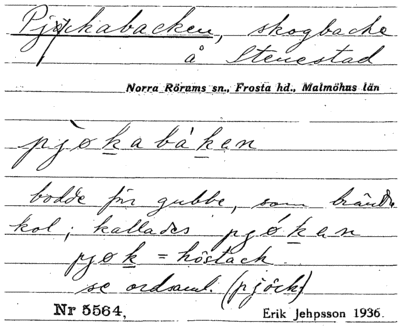 Pjökabacken, skogbacke
å Stenestad
Norra Rörums sn., Frosta hd., Malmöhus län
pjøkabàken
bodde för gubbe, som brände
kol; kallades pjǿken
pjøk = höstack.
se ordsaml. (pjöck)
Nr 5564, Erik Jehpsson 1936.